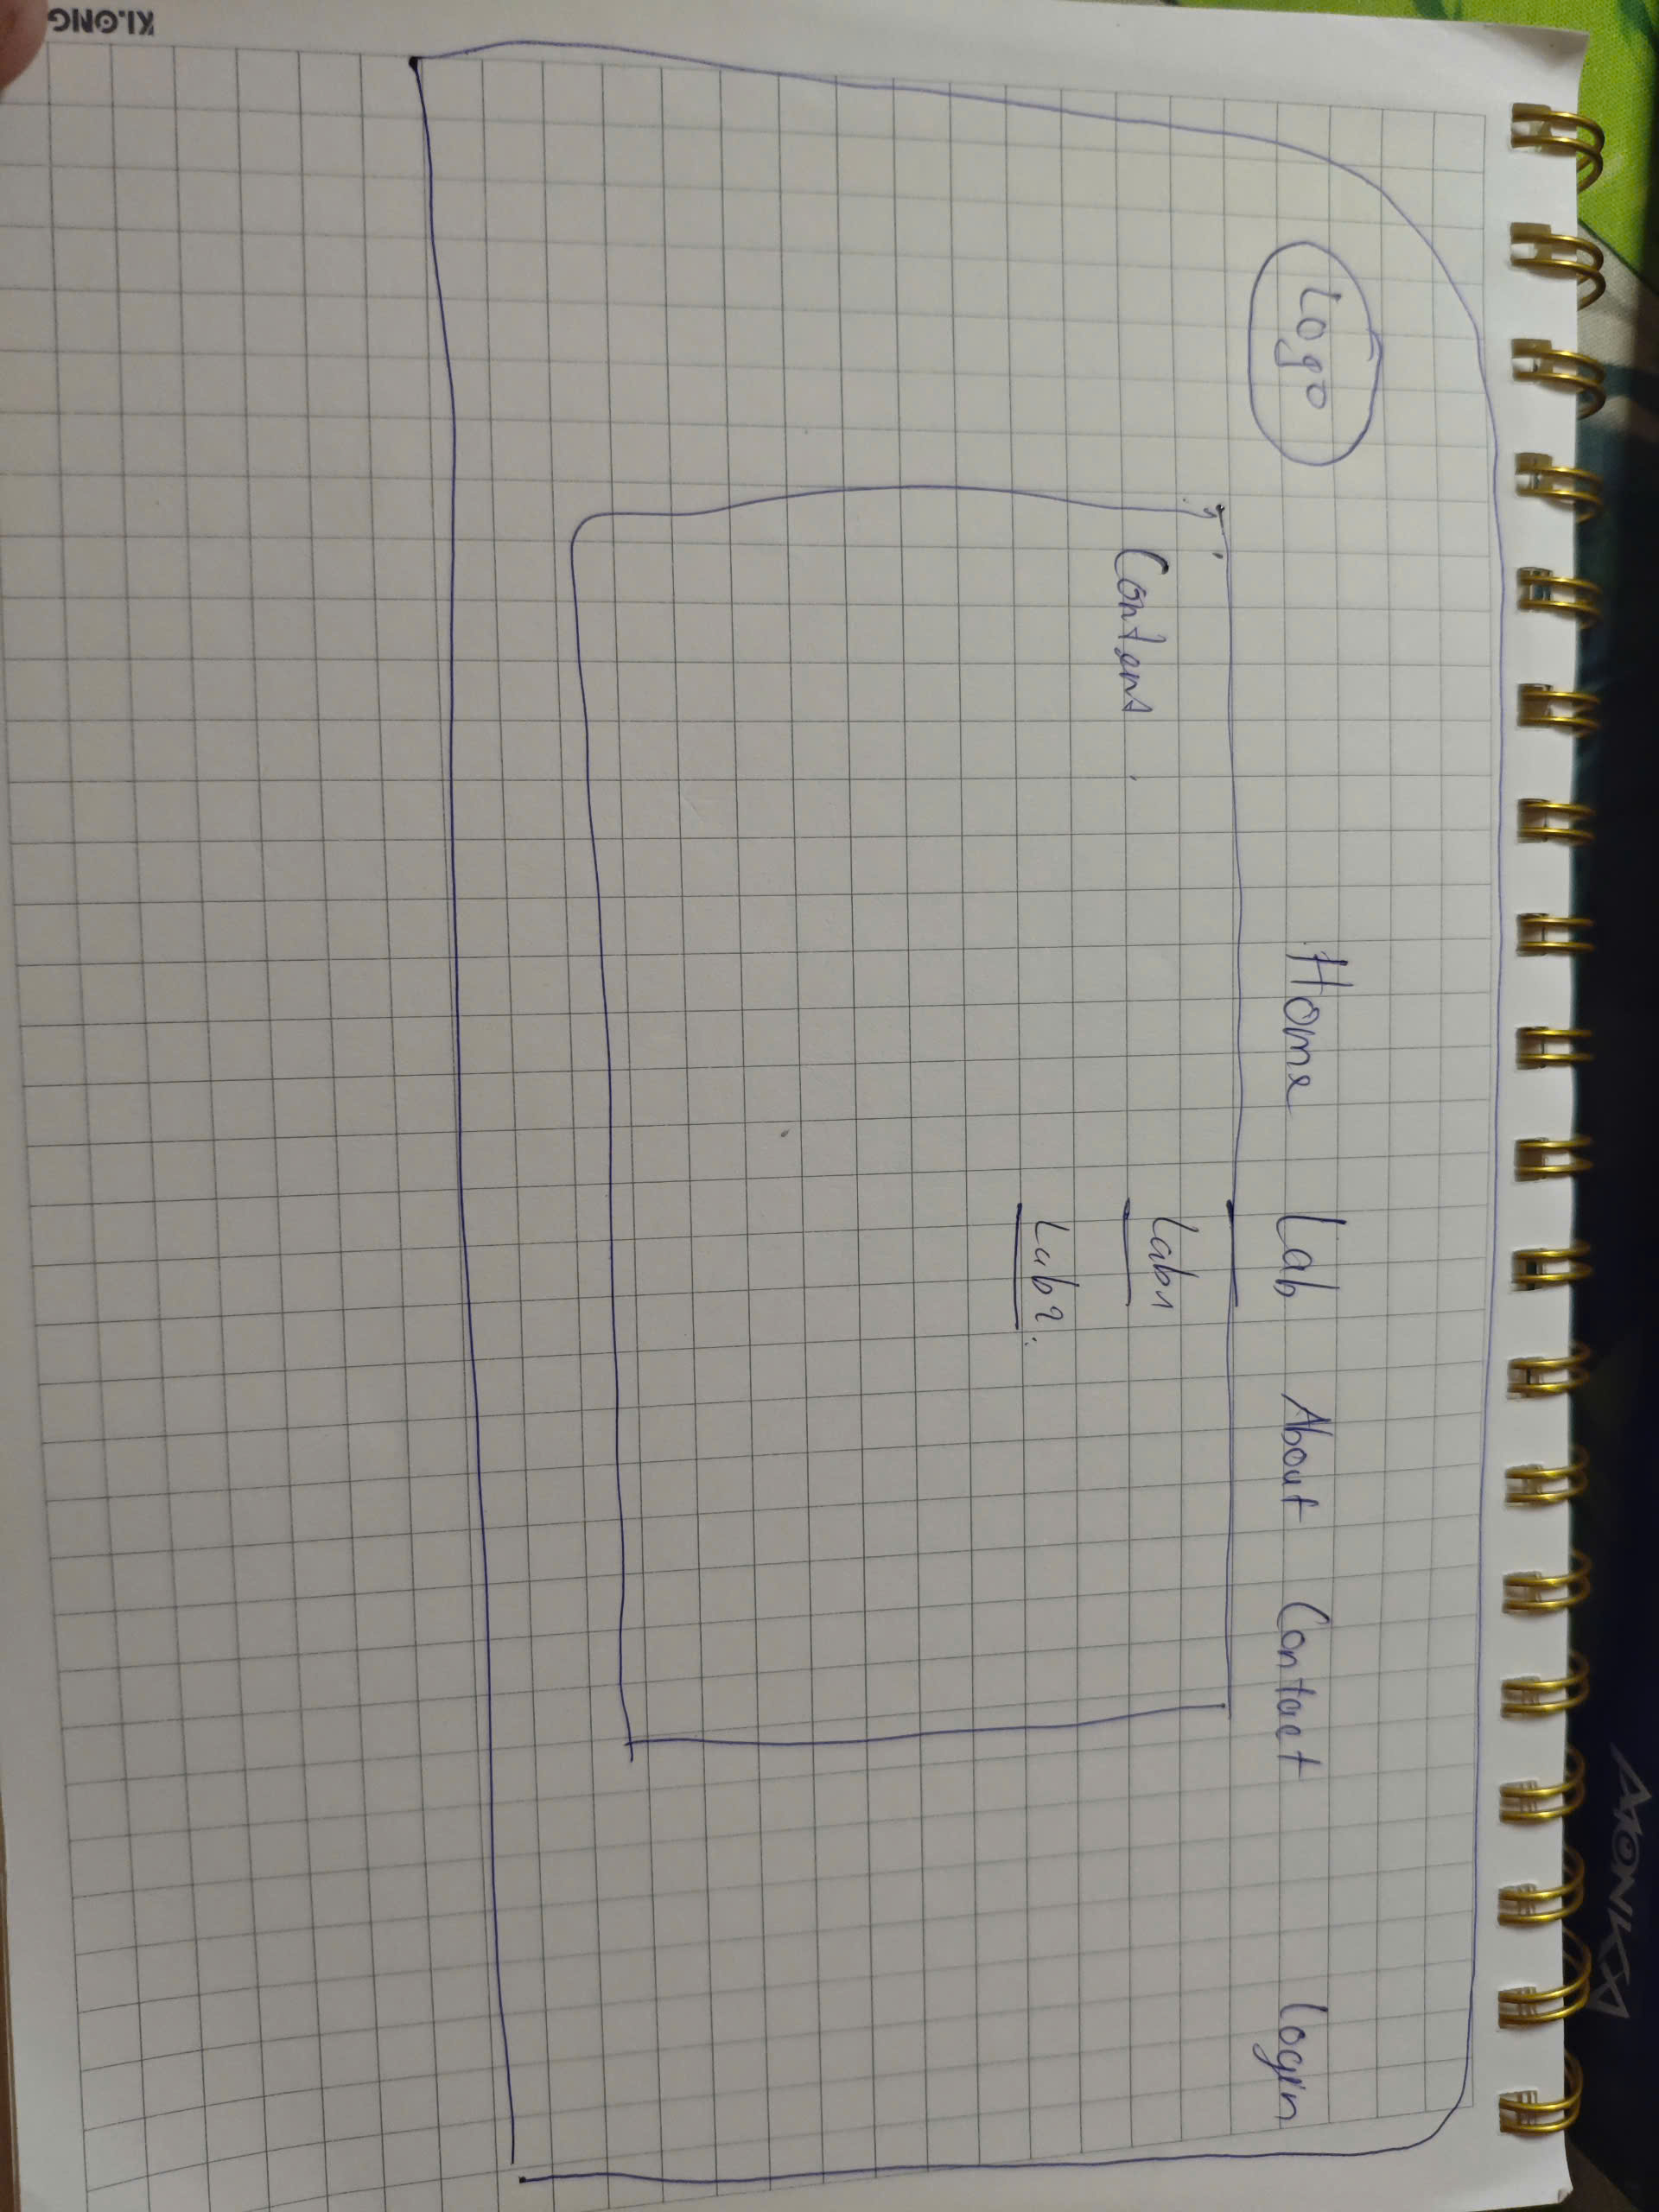 Logo Home Lab About Contact Login
Content
Lab1
Lab2
KLONG